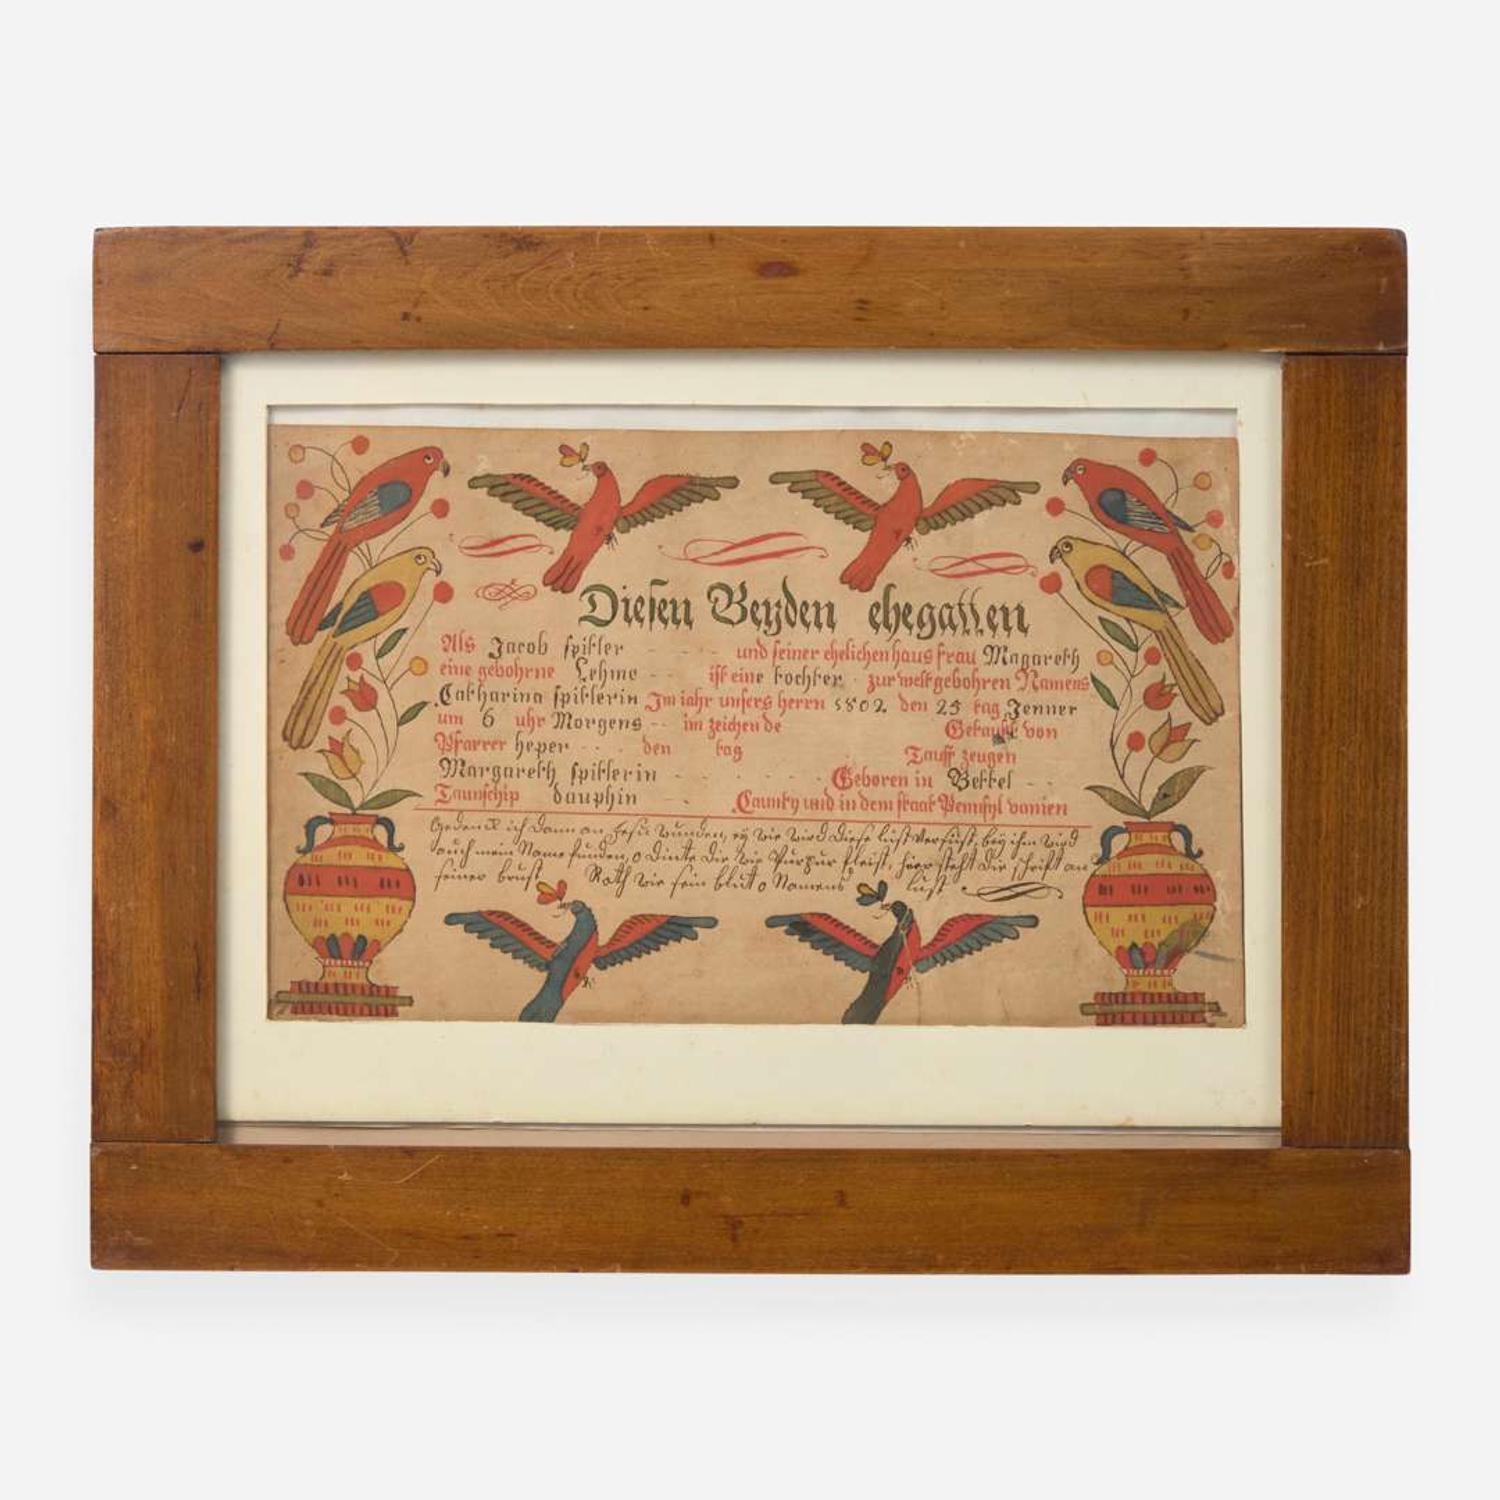 Diesen Beyden ehegatten
Als Jacob spikler und seiner ehelichen haus frau Magareth
eine gebohrne Lehmo ist eine tochter zur welt gebohren Namens
Catharina spiklerin Im iahr unsers herrn 1802 den 25 tag Jenner
um 6 uhr Morgens im zeichen de Getauft von
Pfarrer heper den tag Tauff zeugen
Margareth spiklerin Geboren in Bettel
Taunschip dauphin Caunty und in dem staat Pennsylvanien
Gedenck ich dann an Jesu wunden, ey wie wird diese lust versüst, bey ihm wird
auch mein Name funden, o dinte die wie Purpur fleist, hier steht die schrift an
seiner brust Roth wie sein blut o Namens lust